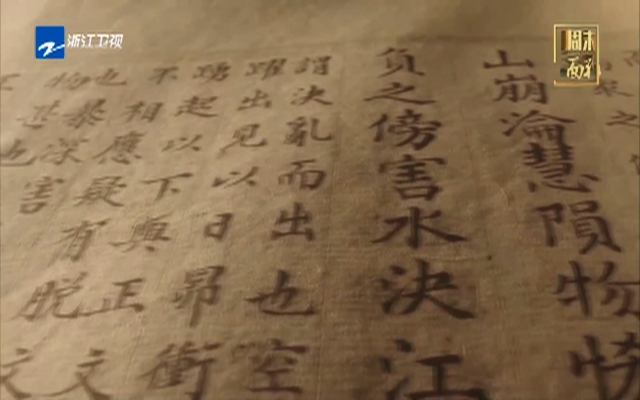 浙江卫视
周末面孔
山崩淪慧隕物
負之傍害水決江
謂決亂而出也空
躍出見以日昴衝
踴起以下與正文
不相應疑有脱文
也暴深害
物甚也